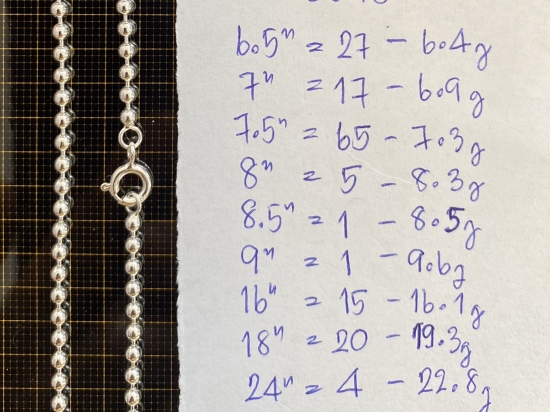 6.5" = 27 - 6.4g
7" = 17 - 6.9g
7.5" = 65 - 7.3g
8" = 5 - 8.3g
8.5" = 1 - 8.5g
9" = 1 - 9.6g
16" = 15 - 16.1g
18" = 20 - 19.3g
24" = 4 - 22.8g